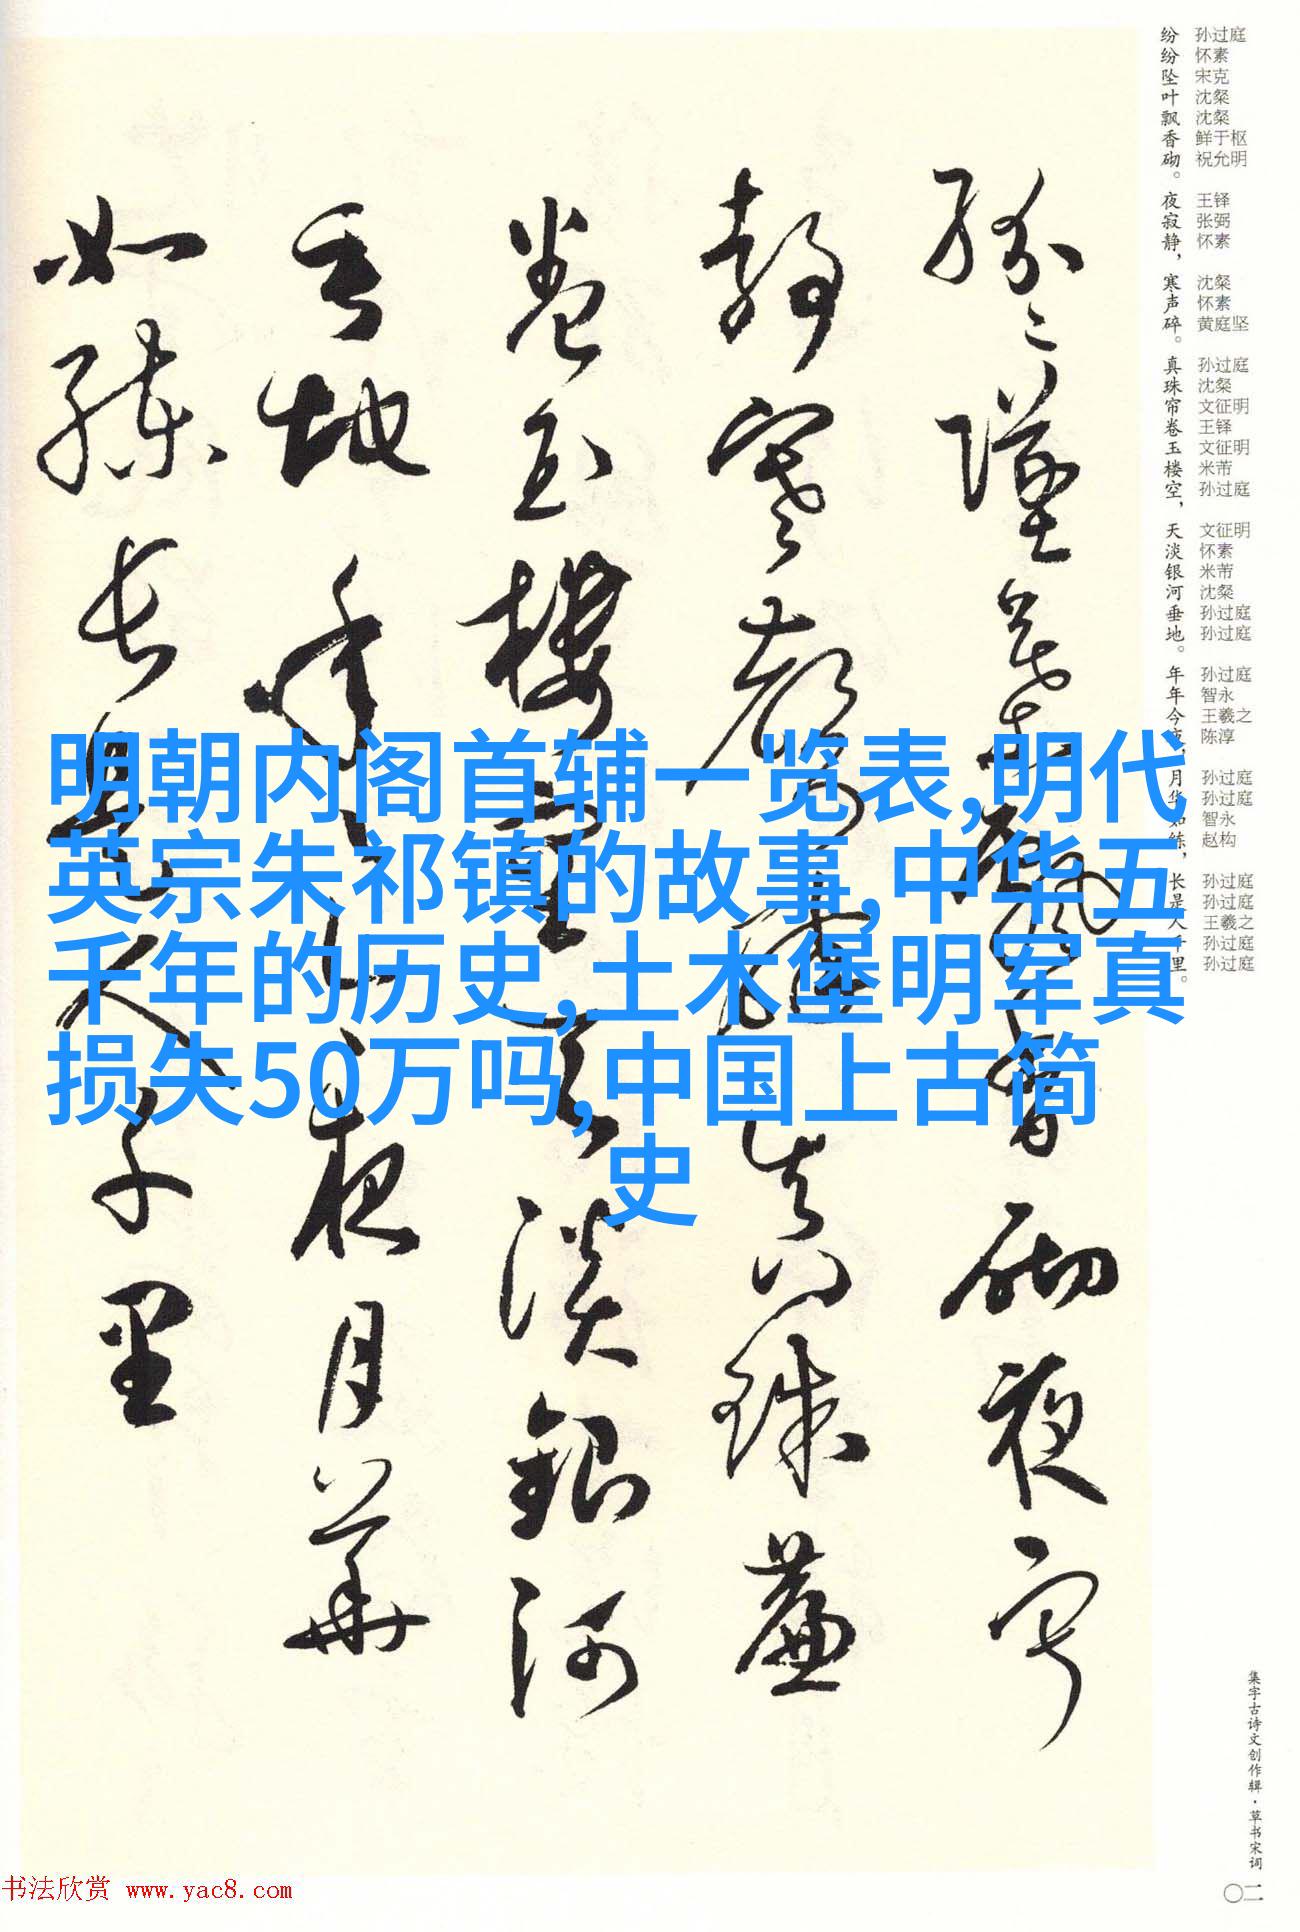 纷纷坠叶飘香砌。夜寂静，寒声碎。真珠帘卷玉楼空，天淡银河垂地。年年今夜，月华如练，长是人千里。
孙过庭
怀素
宋克
沈粲
沈粲
鲜于枢
祝允明
王铎
张弼
怀素
沈粲
怀素
黄庭坚
孙过庭
沈粲
文征明
王铎
文征明
米芾
孙过庭
文征明
怀素
米芾
沈粲
孙过庭
孙过庭
孙过庭
智永
王羲之
陈淳
孙过庭
孙过庭
智永
赵构
孙过庭
孙过庭
王羲之
孙过庭
孙过庭
紛々墜葉飄香砌夜寂
靜寒聲碎真珠簾
卷玉樓空天淡銀河
垂地年々今夜月華
如練長是人千里
明朝内阁首辅一览表,明代
英宗朱祁镇的故事,中华五
千年的历史,土木堡明军真
损失50万吗,中国上古简
史
集字古诗文创作辑·草书宋词
〇二
书法欣赏 www.yac8.com